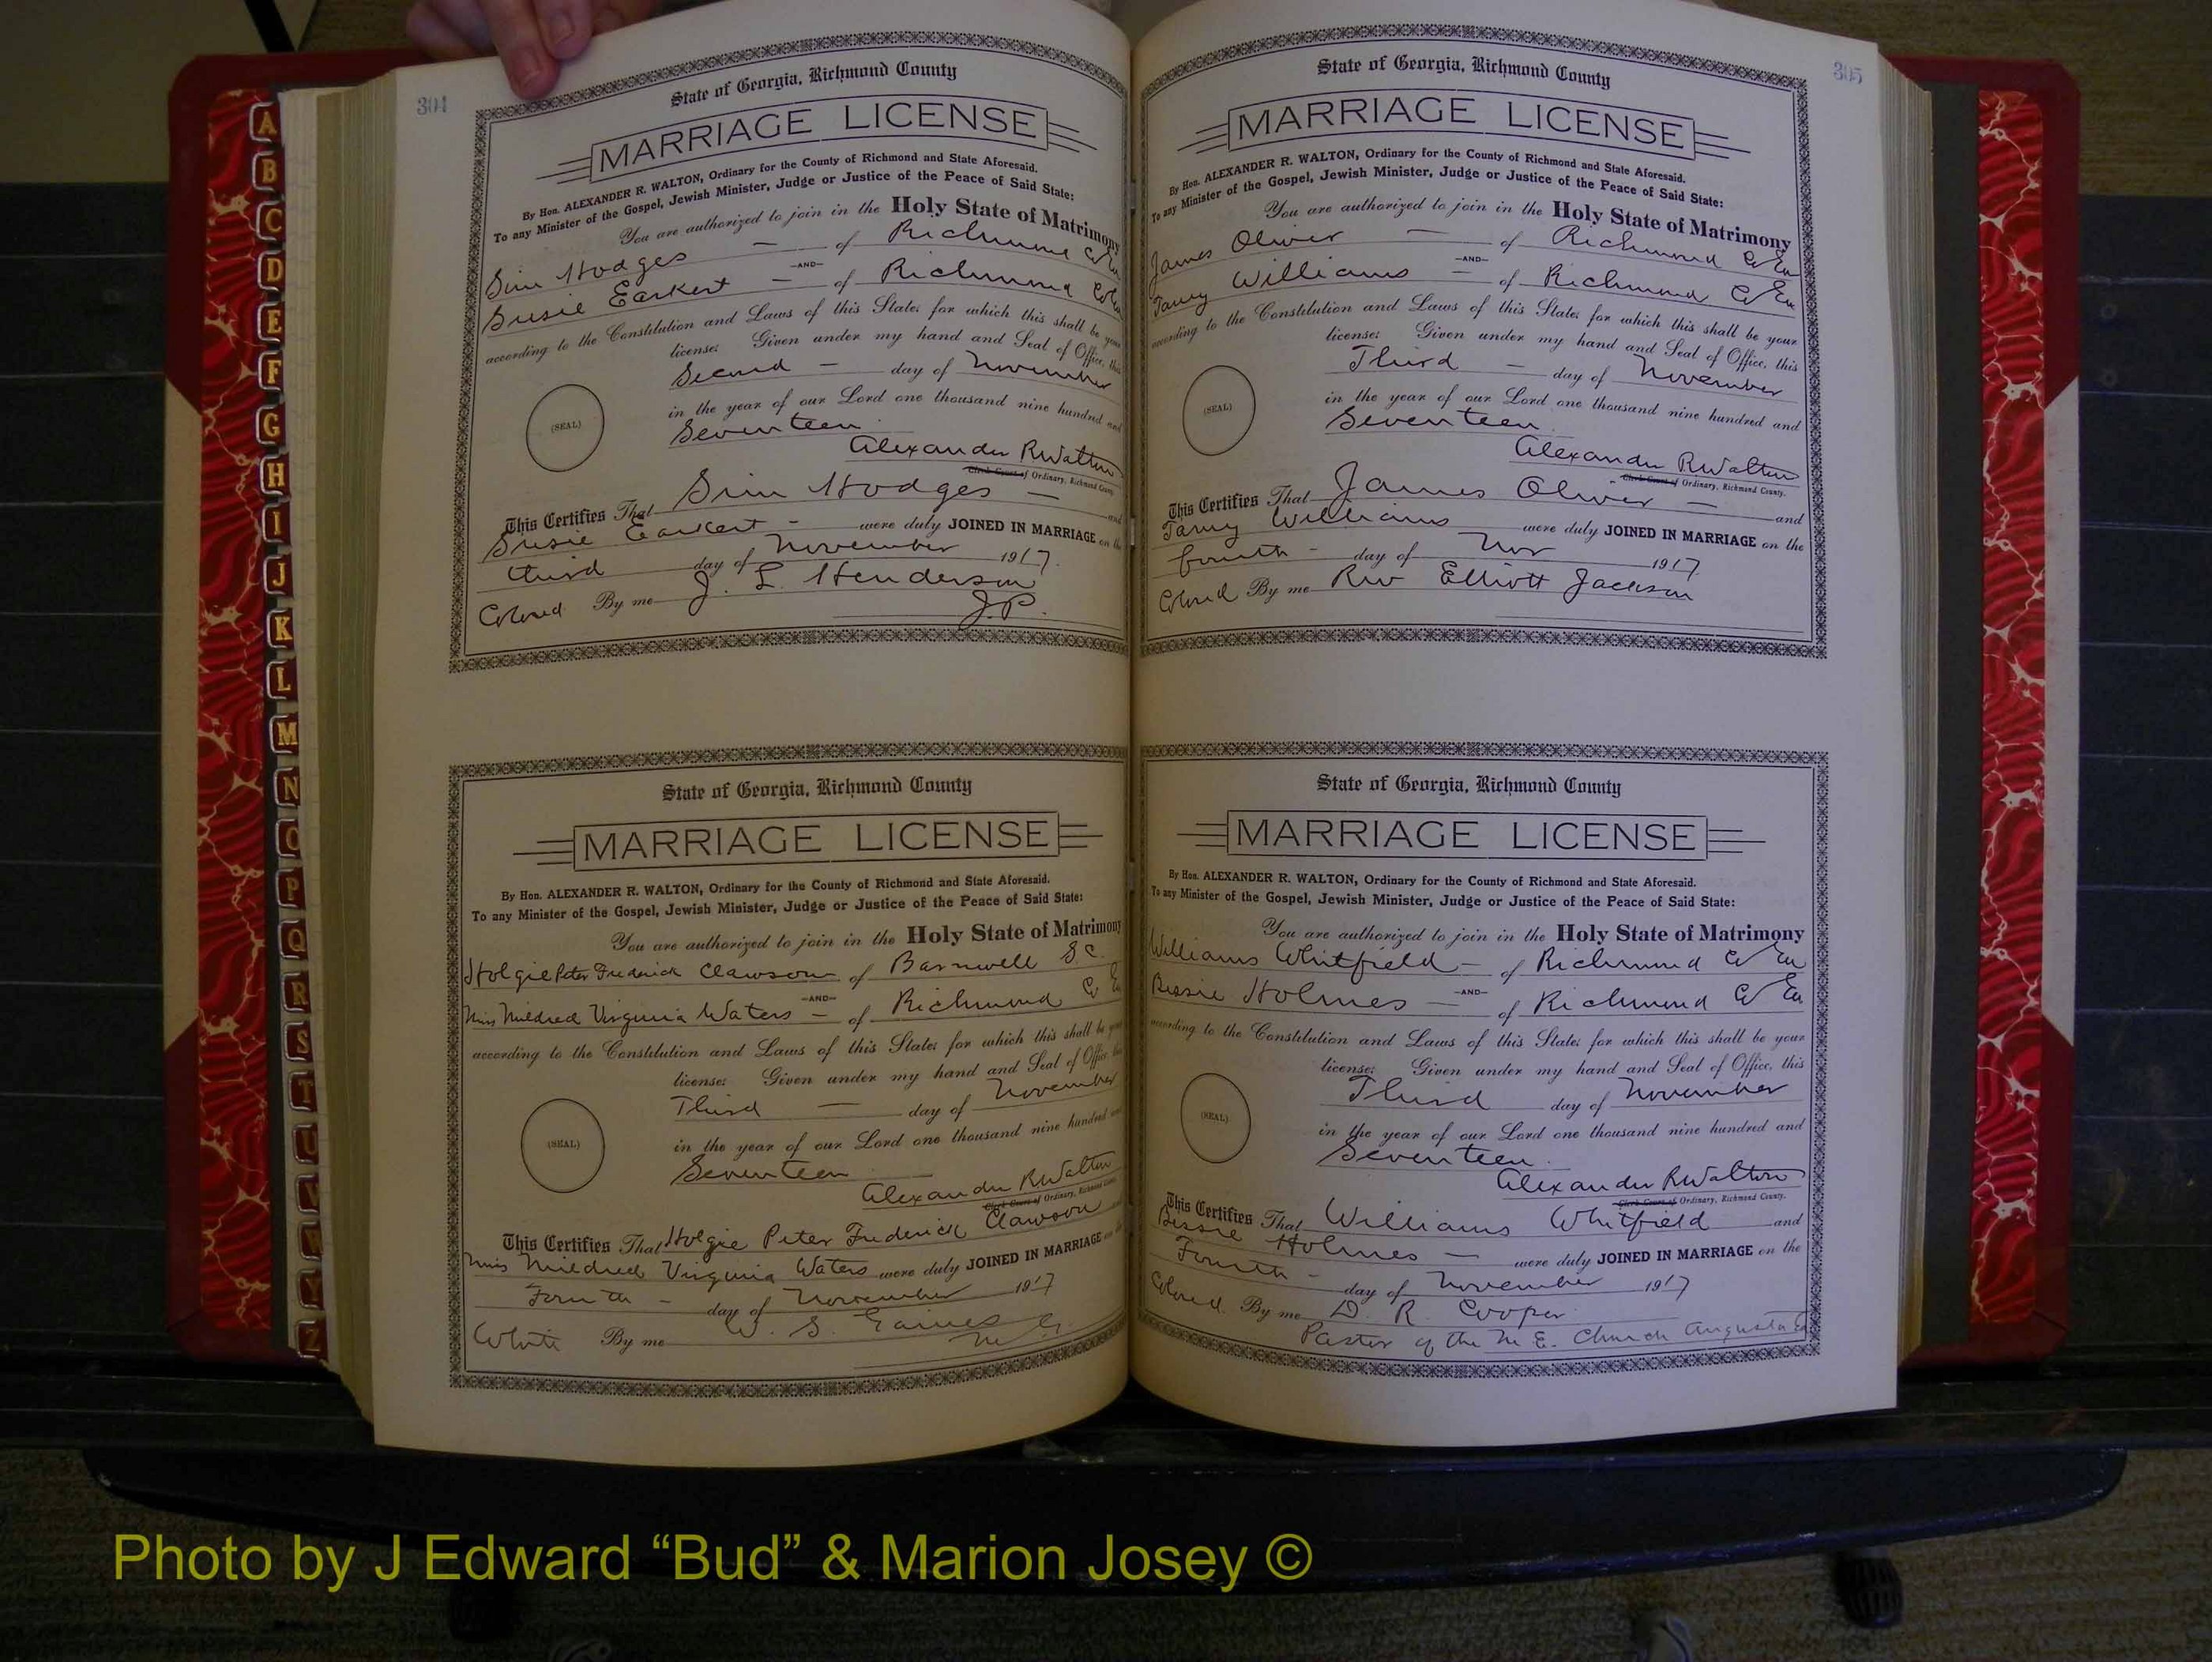 304
State of Georgia, Richmond County
MARRIAGE LICENSE
By Hon. ALEXANDER R. WALTON, Ordinary for the County of Richmond and State Aforesaid.
To any Minister of the Gospel, Jewish Minister, Judge or Justice of the Peace of Said State:
You are authorized to join in the Holy State of Matrimony
Sim Hodges — of Richmond Co Ga
—AND—
Susie Earkert — of Richmond Co Ga
according to the Constitution and Laws of this State; for which this shall be your
license: Given under my hand and Seal of Office, this
Second — day of November
(SEAL)
in the year of our Lord one thousand nine hundred and
Seventeen
Alexander R Walton
Clerk Court of Ordinary, Richmond County.
This Certifies That Sim Hodges — and
Susie Earkert — were duly JOINED IN MARRIAGE on the
third day of November 1917.
Colored By me J. L. Henderson
J.P.
State of Georgia, Richmond County
MARRIAGE LICENSE
By Hon. ALEXANDER R. WALTON, Ordinary for the County of Richmond and State Aforesaid.
To any Minister of the Gospel, Jewish Minister, Judge or Justice of the Peace of Said State:
You are authorized to join in the Holy State of Matrimony
Holgie Peter Frederick Clawson of Barnwell S C.
—AND—
Miss Mildred Virginia Waters — of Richmond Co Ga
according to the Constitution and Laws of this State; for which this shall be your
license: Given under my hand and Seal of Office, this
Third — day of November
(SEAL)
in the year of our Lord one thousand nine hundred and
Seventeen
Alexander R Walton
Clerk Court of Ordinary, Richmond County.
This Certifies That Holgie Peter Frederick Clawson and
Miss Mildred Virginia Waters were duly JOINED IN MARRIAGE on the
Fourth — day of November 1917
White By me W. S. Gaines
M G.
305
State of Georgia, Richmond County
MARRIAGE LICENSE
By Hon. ALEXANDER R. WALTON, Ordinary for the County of Richmond and State Aforesaid.
To any Minister of the Gospel, Jewish Minister, Judge or Justice of the Peace of Said State:
You are authorized to join in the Holy State of Matrimony
James Oliver — of Richmond Co Ga
—AND—
Williams — of Richmond Co Ga
according to the Constitution and Laws of this State; for which this shall be your
license: Given under my hand and Seal of Office, this
Third — day of November
(SEAL)
in the year of our Lord one thousand nine hundred and
Seventeen
Alexander R Walton
Clerk Court of Ordinary, Richmond County.
This Certifies That James Oliver — and
Williams were duly JOINED IN MARRIAGE on the
fourth — day of Nov 1917.
Colored By me Rev Elliott Jackson
State of Georgia, Richmond County
MARRIAGE LICENSE
By Hon. ALEXANDER R. WALTON, Ordinary for the County of Richmond and State Aforesaid.
To any Minister of the Gospel, Jewish Minister, Judge or Justice of the Peace of Said State:
You are authorized to join in the Holy State of Matrimony
Williams Whitfield — of Richmond Co Ga
—AND—
Bessie Holmes — of Richmond Co Ga
according to the Constitution and Laws of this State; for which this shall be your
license: Given under my hand and Seal of Office, this
Third day of November
(SEAL)
in the year of our Lord one thousand nine hundred and
Seventeen.
Alexander R Walton
Clerk Court of Ordinary, Richmond County.
This Certifies That Williams Whitfield and
Bessie Holmes — were duly JOINED IN MARRIAGE on the
Fourth — day of November 1917
Colored. By me D. R. Cooper
Pastor of the M E. Church Augusta Ga
A
B
C
D
E
F
G
H
I
J
K
L
M
N
O
P
Q
R
S
T
U
V
W
Y
Z
Photo by J Edward “Bud” & Marion Josey ©